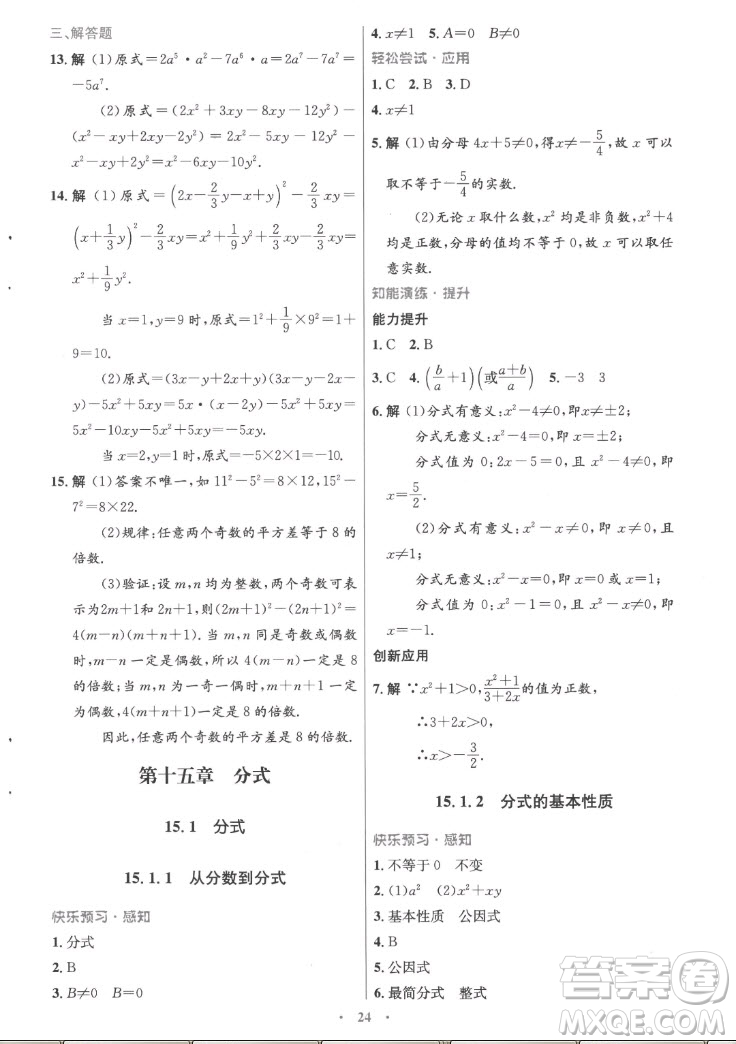 三、解答题
13. 解 (1)原式=2a⁵·a²-7a⁶·a=2a⁷-7a⁷=
-5a⁷.
(2)原式=(2x²+3xy-8xy-12y²)-
(x²-xy+2xy-2y²)=2x²-5xy-12y²-
x²-xy+2y²=x²-6xy-10y².
14. 解 (1)原式=(2x-2/3y-x+y)²-2/3xy=
(x+1/3y)²-2/3xy=x²+1/9y²+2/3xy-2/3xy=
x²+1/9y².
当 x=1,y=9 时,原式=1²+1/9×9²=1+
9=10.
(2)原式=(3x-y+2x+y)(3x-y-2x-
y)+5xy=5x·(x-2y)+5xy=5x²-10xy+
5xy=5x²-5xy.
当 x=2,y=3 时,原式=-5×2×1=-10.
15. 解 (1)答案不唯一,如 11²-5²=8×12,15²-
7²=8×22.
(2)规律:任意两个奇数的平方差等于 8 的
倍数.
(3)验证:设 m,n 为整数,两个奇数可表
示为 2m+1和 2n+1,则(2m+1)²-(2n+1)²=
4(m-n)(m+n+1). 当 m,n 同是奇数或偶数
时,m-n 一定是偶数,所以 4(m-n)一定是 8
的倍数;当 m,n 为一奇一偶时,m+n+1 一定
为偶数,4(m+n+1)一定是 8 的倍数.
因此,任意两个奇数的平方差是 8 的倍数.
第十五章 分式
15.1 分式
15.1.1 从分数到分式
快乐预习·感知
1. 分式
2. B
3. B≠0 B=0
4. x≠1 5. A=0 B≠0
轻松尝试·应用
1. C 2. B 3. D
4. x≠1
5. 解 (1)由分母 4x+5≠0,得 x≠-5/4,故 x 可以
取不等于-5/4的实数.
(2)无论 x 取什么数,x² 均是非负数,x²+4
均是正数,分母的值均不等于 0,故 x 可以取任
意实数.
知能演练·提升
能力提升
1. C 2. B
3. C 4. (b/a+1)(或(a+b)/a) 5. -3 3
6. 解 (1)分式有意义:x²-4≠0,即x≠±2;
分式无意义:x²-4=0,即x=±2;
分式值为 0:2x-5=0 且 x²-4≠0,即 x=
5/2.
(2)分式有意义:x²-x≠0,即 x≠0 且
x≠1;
分式无意义:x²-x=0,即 x=0 或 x=1;
分式值为 0:x²-1=0 且 x²-x≠0,即
x=-1.
创新应用
7. 解 ∵x²+1>0,(x²+1)/(3+2x)的值为正数,
∴3+2x>0,
∴x>-3/2.
15.1.2 分式的基本性质
快乐预习·感知
1. 不等于 0 不变
2. (1)a² (2)x²+xy
3. 基本性质 公因式
4. B
5. 公因式
6. 最简分式 整式
· 24 ·
答案圈
MXQE.COM